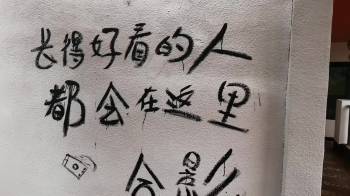 长得好看的人
都会在这里
合影